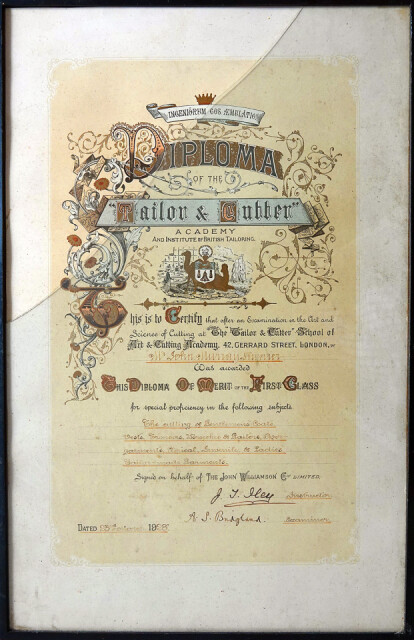 INGENIORUM COS ÆMULATIO
DIPLOMA
OF THE
"Tailor & Cutter"
ACADEMY
AND INSTITUTE OF BRITISH TAILORING.
This is to Certify that after an Examination in the Art and
Science of Cutting at "The Tailor & Cutter" School of
Art & Cutting Academy, 42, GERRARD STREET, LONDON, W
Mr John
Was awarded
THIS DIPLOMA OF MERIT OF THE FIRST CLASS
for special proficiency in the following subjects
The cutting of Gentlemen's Coats
Vests, Trousers, Breeches &
Clerical, Juvenile & Ladies
Garments.
Signed on behalf of THE JOHN WILLIAMSON Coy LIMITED.
Instructor
A. S. Bridgland. Examiner
DATED 189